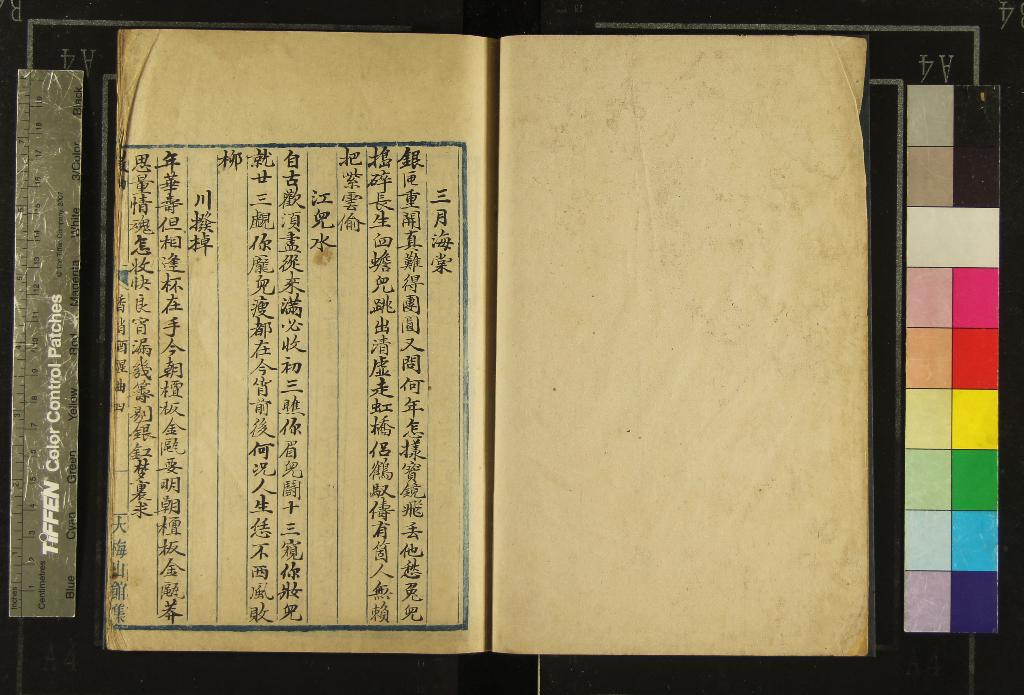 三月海棠
銀匣重開真難得團圓又問何年怎樣寶鏡飛丢他愁兔兒
搗碎長生血蟾兒跳出清虛走虹橋侣鶴馭儔有箇人無賴
把紫雲偷
江兒水
自古歡須盡從來滿必收初三瞧你眉兒鬪十三窺你妝兒
就廿三覷你龐兒瘦都在今宵前後何况人生恁不西風敗
柳
川撥棹
年華壽但相逢杯在手今朝檀板金甌要明朝檀板金甌莽
思量情魂怎收快良宵漏幾籌剔銀釭夢裏求
香消酒醒曲
大梅山館集
TIFFEN Color Control Patches
© The Tiffen Company, 2007
Centimetres
Inches
Blue
Cyan
Green
Yellow
Red
Magenta
White
3/Color
Black
A4
A4
A4
A4